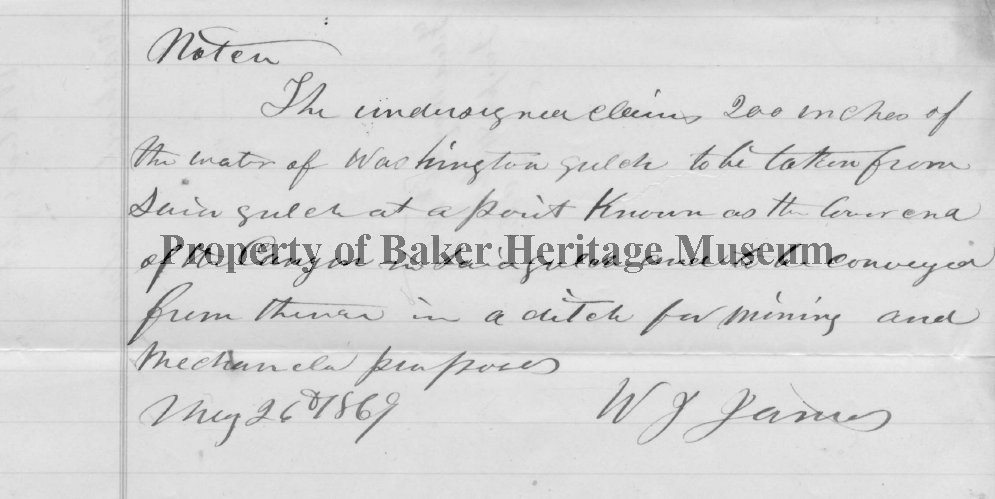 Noten
The undersigned claims 200 inches of
the water of Washington gulch to be taken from
Said gulch at a point Known as the lower end
Property of Baker Heritage Museum
of the Canyon in said gulch and to be conveyed
from in a ditch for mining and
purposes
May 26 1869
W J James